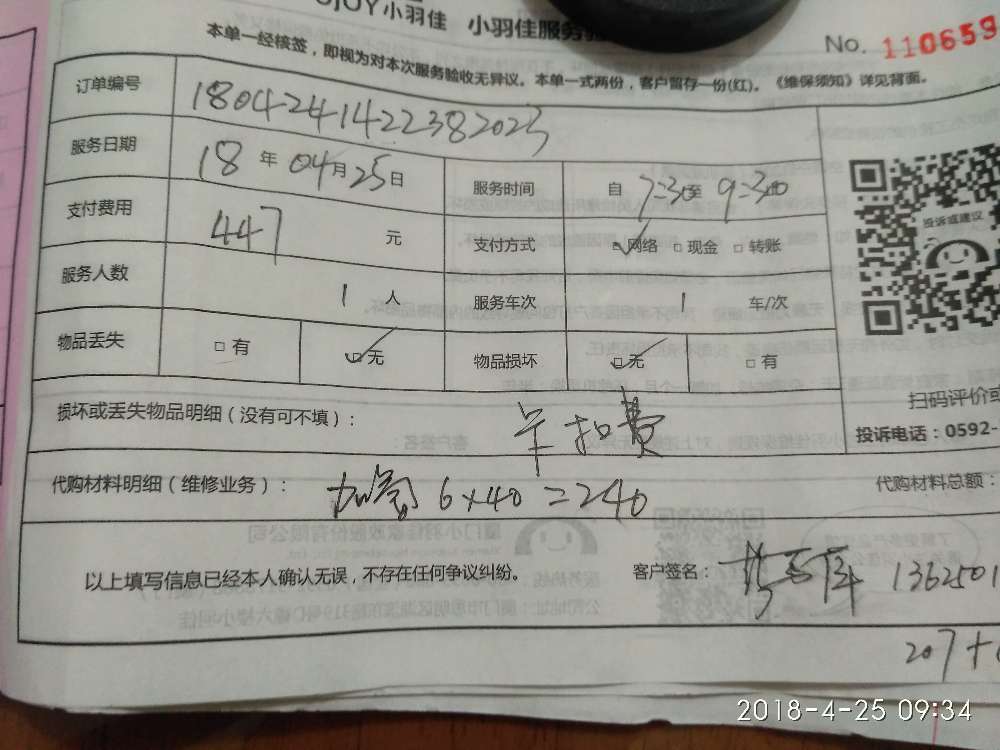 小羽佳 小羽佳服务
No. 110659
本单一经核签，即视为对本次服务验收无异议。本单一式两份，客户留存一份(红)。《维保须知》详见背面。
订单编号 1804241422382023
服务日期 18 年 04 月 25 日 服务时间 自 7:30 至 9:30
支付费用 447 元 支付方式 ☑网络 □现金 □转账
服务人数 1 人 服务车次 1 车/次
物品丢失 □有 ☑无 物品损坏 ☑无 □有
投诉或建议
损坏或丢失物品明细（没有可不填）： 年扣费
扫码评价或
投诉电话：0592-
代购材料明细（维修业务）： 6×40=240 代购材料总额：
以上填写信息已经本人确认无误，不存在任何争议纠纷。 客户签名： 1362501
207+
2018-4-25 09:34